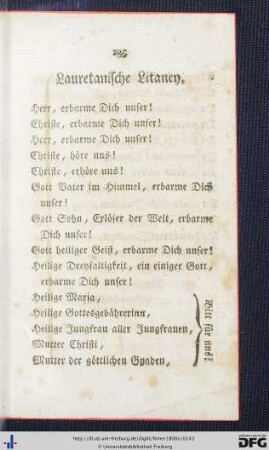 195
Lauretanische Litaney.
Herr, erbarme Dich unser!
Christe, erbarme Dich unser!
Herr, erbarme Dich unser!
Christe, höre uns!
Christe, erhöre uns!
Gott Vater im Himmel, erbarme Dich
unser!
Gott Sohn, Erlöser der Welt, erbarme
Dich unser!
Gott heiliger Geist, erbarme Dich unser!
Heilige Dreyfaltigkeit, ein einiger Gott,
erbarme Dich unser!
Heilige Maria,
Heilige Gottesgebährerinn,
Heilige Jungfrau aller Jungfrauen,
Mutter Christi,
Mutter der göttlichen Gnaden,
Bitt für uns!
© Universitätsbibliothek Freiburg
DFG